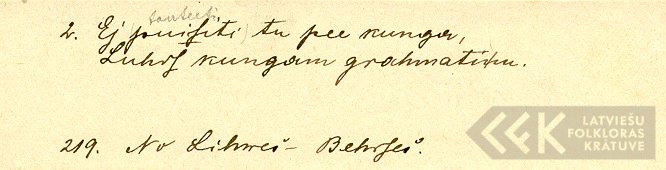 tauteeti
2. Ej (puisiti) tu pee kunga,
Luhds kungam grahmatiņu.
219. No Lihwes-Behrses.
LATVIEŠU
FOLKLORAS
KRĀTUVE